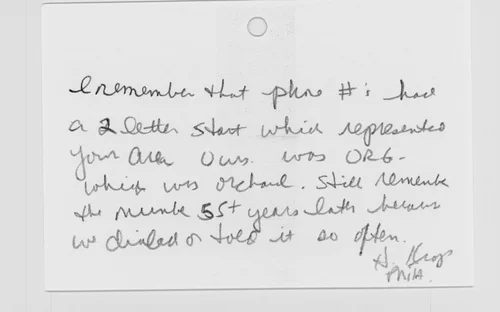 I remember that phone #'s have
a 2 letter start which represented
your area Ours was ORG-
which was orchard. Still remember
the number 55+ years later because
we dialed or told it so often.
Phila.